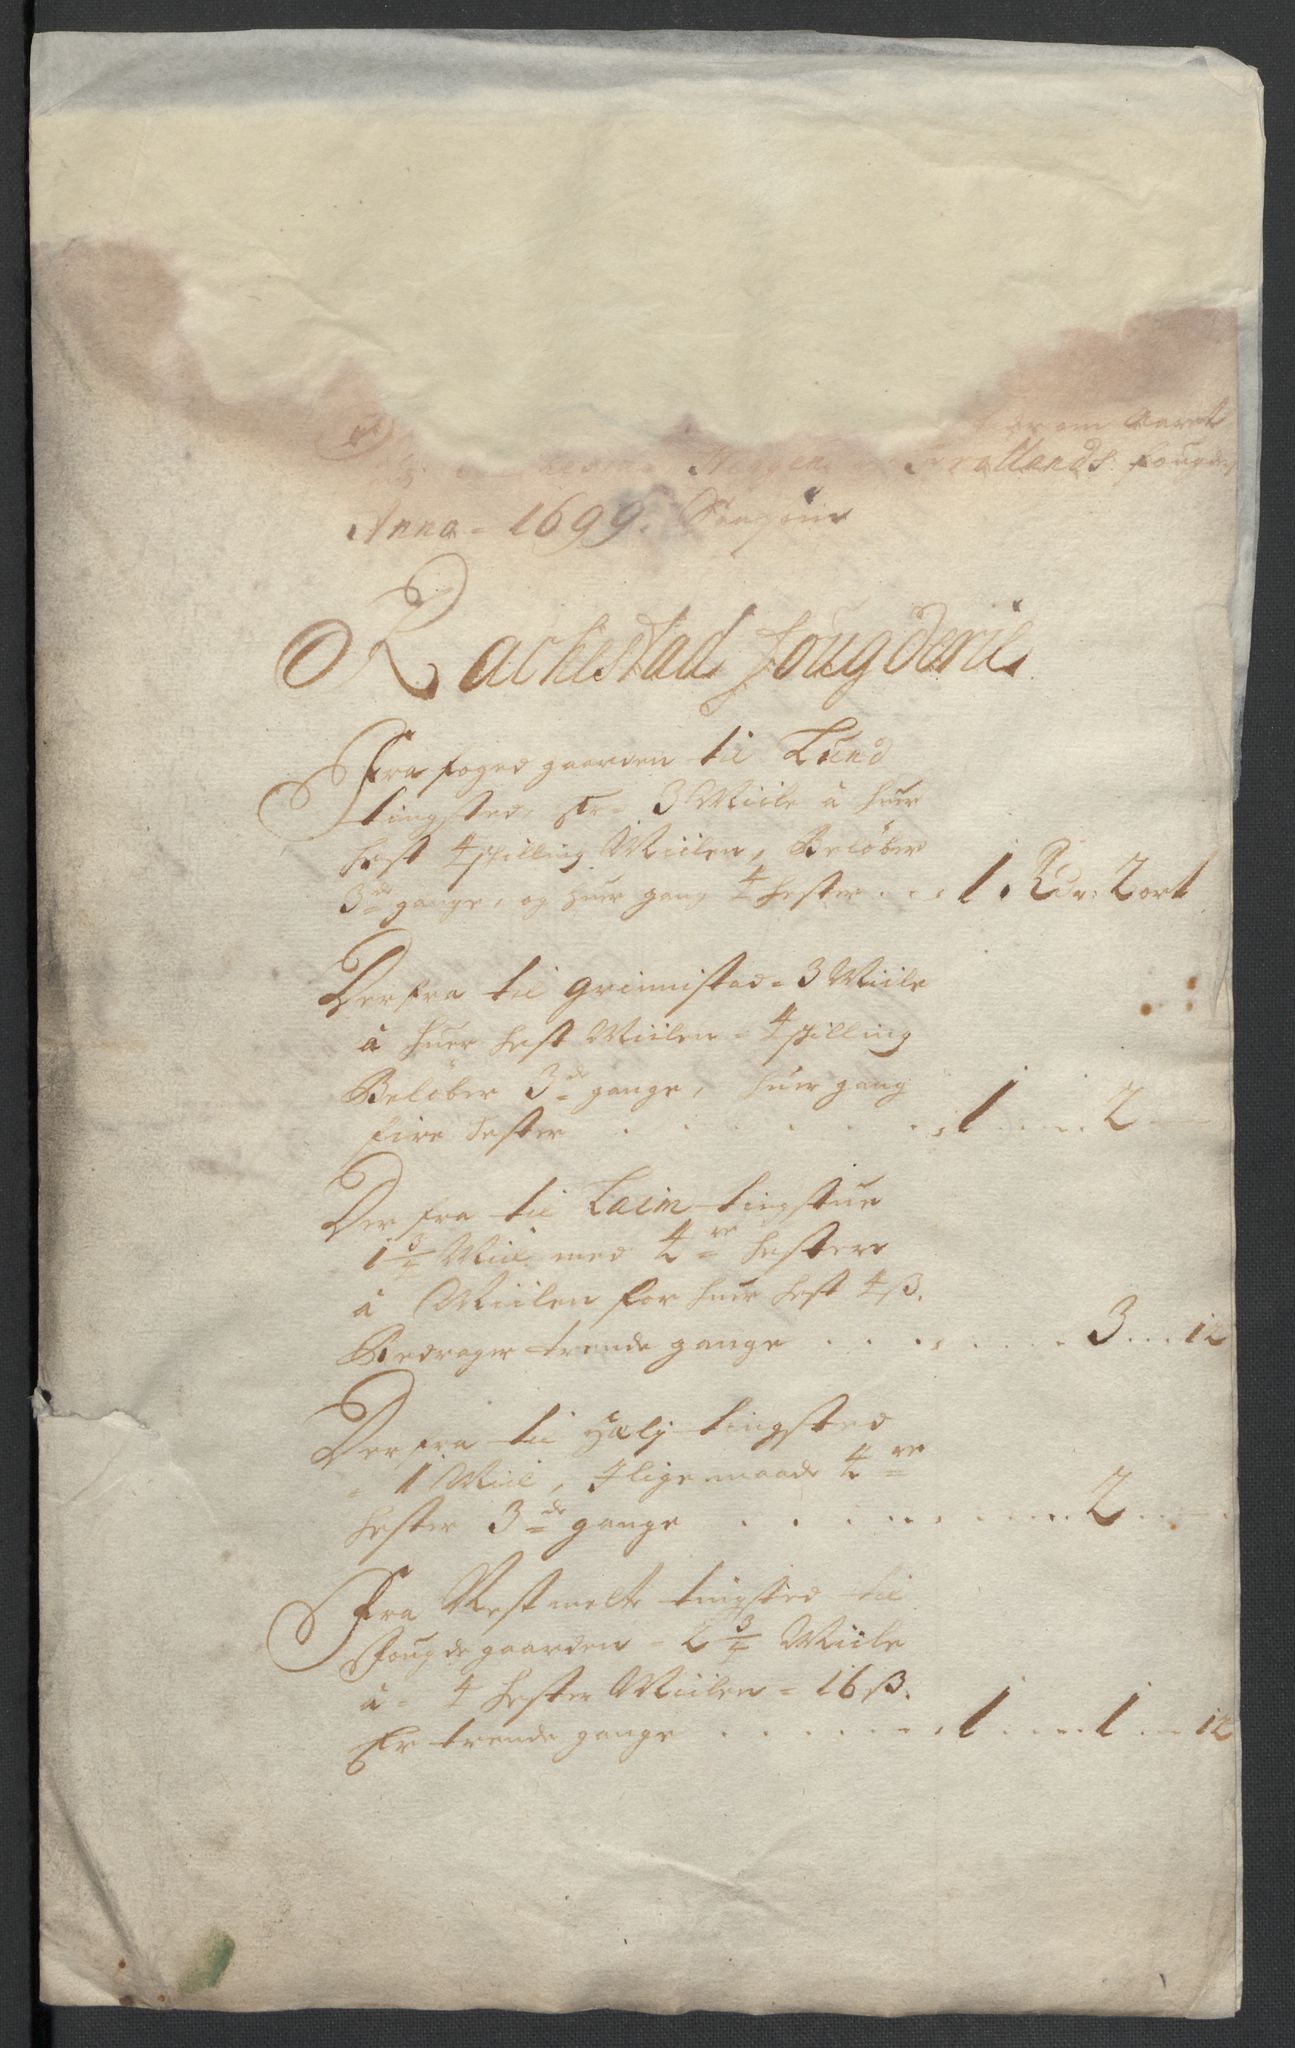 om aaret
Heggen Frøllands fougde
Anno 1699. Saasom
Rachestad fougderie
Fra foged gaarden til Lund
tingsted, er 3 Miile â huer
hest 4 skilling Miilen, Beløber
3de gange, og huer gang 4 hester . . . 1 Rdr: 2 ort
Der fra til Grimistad = 3 Miile
â huer hest Miilen = 4 skilling
Beløber 3de gange, huer gang
fire hester . . . . . . . 1 . . . 2 —
Der fra til Laim tingstue
1 3/4 Miil med 4re hestere
â Miilen for huer hest 4 ß.
Bedrager trende gange . . . . . . . 3 . . . 12
Der fra til Hælj tingsted
= 1 Miil, J lige maade 4re
hester 3de gange . . . . . . . . 2 . . . .
Fra Restmelte tingsted til
Fougde gaarden = 2 3/4 Miile
â = 4 hester Miilen = 16 ß.
Er trende gange . . . . . . 1 . . . 1 . . . 12